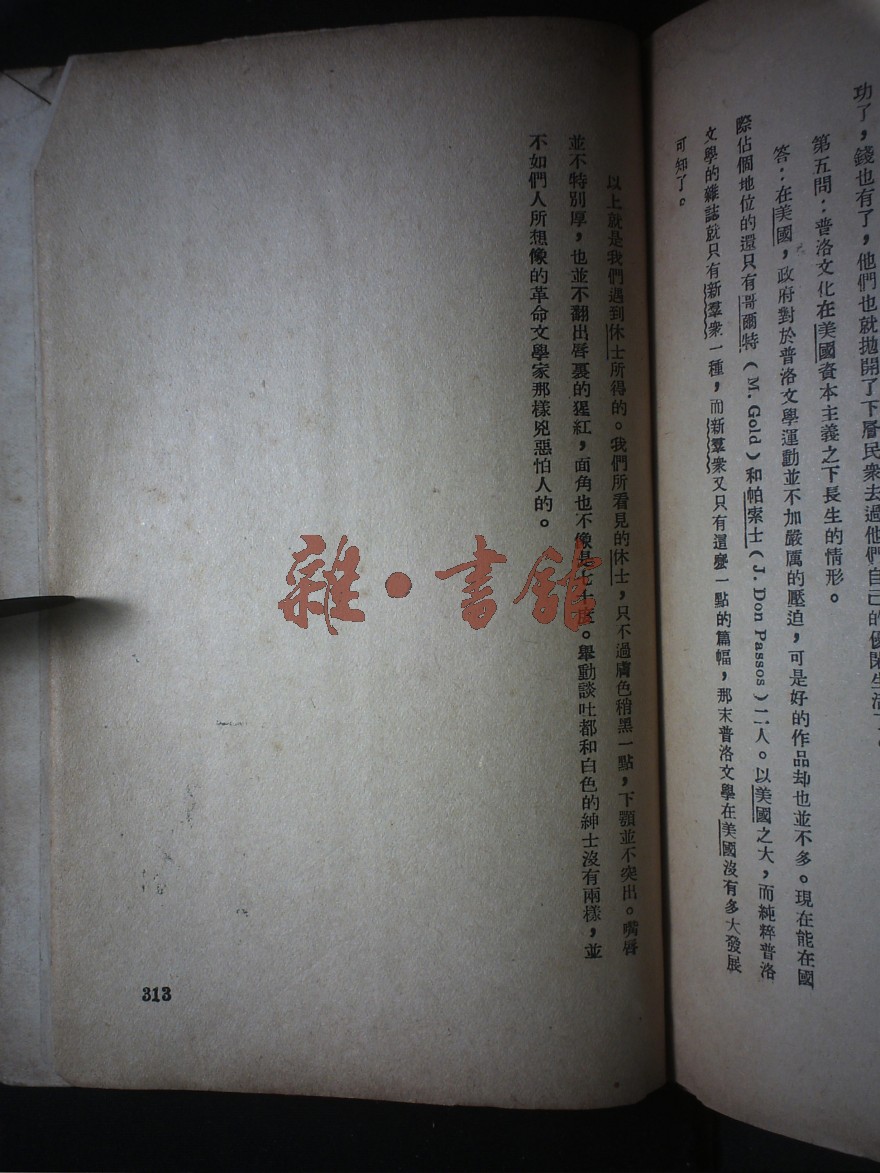 功了，錢也有了，他們也就拋開了下層民衆去過他們自己的優閑生活了。
第五問：普洛文化在美國資本主義之下長生的情形。
答：在美國，政府對於普洛文學運動並不加嚴厲的壓迫，可是好的作品却也並不多。現在能在國
際佔個地位的還只有哥爾特（M. Gold）和帕索士（J. Don Passos）二人。以美國之大，而純粹普洛
文學的雜誌就只有新羣衆一種，而新羣衆又只有這麼一點的篇幅，那末普洛文學在美國沒有多大發展
可知了。
以上就是我們遇到休士所得的。我們所看見的休士，只不過膚色稍黑一點，下顎並不突出。嘴唇
並不特別厚，也並不翻出唇裏的猩紅，面角也不像是七十度。舉動談吐都和白色的紳士沒有兩樣，並
不如們人所想像的革命文學家那樣兇惡怕人的。
雜・書館
313